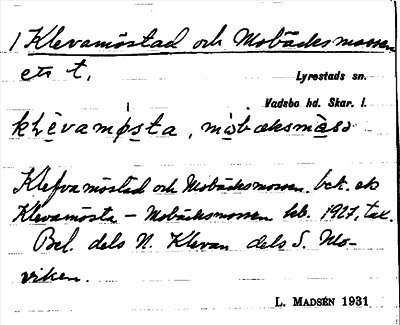 1 Klevamöstad och Mobäcksmossen
ets t.
Lyrestads sn.
Vadsbo hd. Skar. l.
Klefvamöstad och Mobäcksmossen bet. ets
Klevamösta – Mobäcksmossen hb. 1927, tax.
Bel. dels N. Klevan dels S. Mo-
viken.
L. MADSÉN 1931